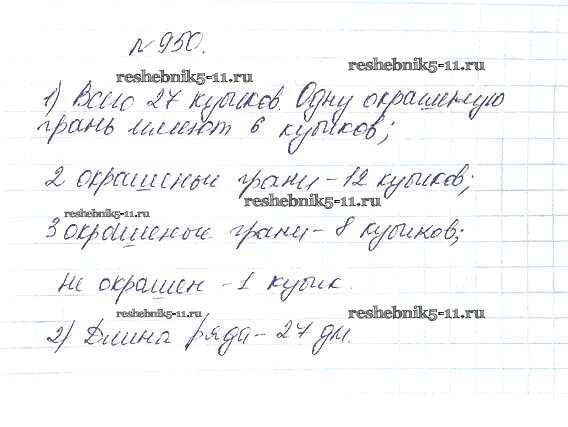 №950.
reshebnik5-11.ru
reshebnik5-11.ru
1) Всего 27 кубиков. Одну окрашенную
грань имеют 6 кубиков;
2 окрашеные грани - 12 кубиков;
reshebnik5-11.ru
reshebnik5-11.ru
3 окрашеные грани - 8 кубиков;
не окрашен - 1 кубик.
reshebnik5-11.ru
2) Длина ряда - 27 дм.